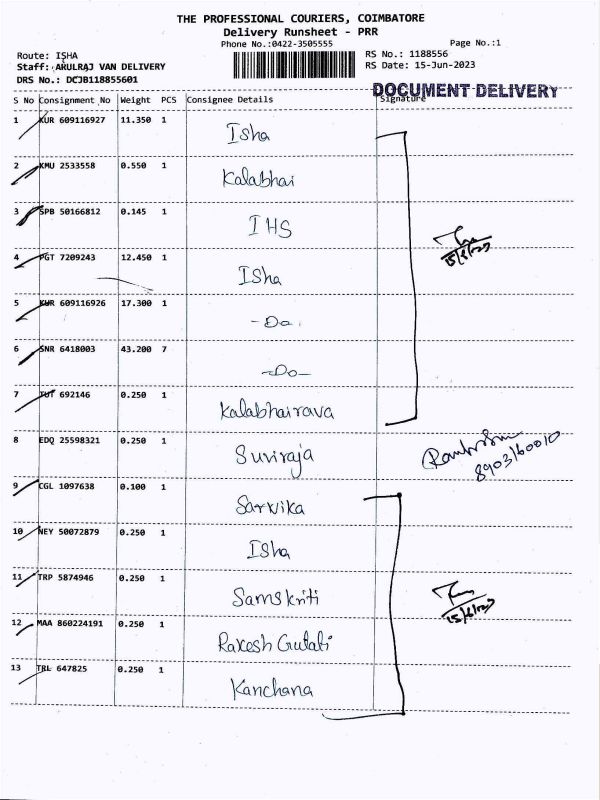 THE PROFESSIONAL COURIERS, COIMBATORE
Delivery Runsheet - PRR
Phone No.:0422-3505555
Page No.:1
Route: ISHA
RS No.: 1188556
Staff: ARULRAJ VAN DELIVERY
RS Date: 15-Jun-2023
DRS No.: DCJB118855601
DOCUMENT DELIVERY
S No Consignment No Weight PCS Consignee Details Signature
1 KUR 609116927 11.350 1 Isha
2 KMU 2533558 0.550 1 Kalabhai
3 SPB 50166812 0.145 1 IHS
4 PGT 7209243 12.450 1 Isha
15/6/23
5 KUR 609116926 17.300 1 -Do.
6 SNR 6418003 43.200 7 -Do-
7 TUT 692146 0.250 1 Kalabhairava
8 EDQ 25598321 0.250 1 Suviraja
8903160010
9 CGL 1097638 0.100 1 Sarvika
10 NEY 50072879 0.250 1 Isha
11 TRP 5874946 0.250 1 Samskriti
15/6/23
12 MAA 860224191 0.250 1 Rakesh Gulati
13 TRL 647825 0.250 1 Kanchana